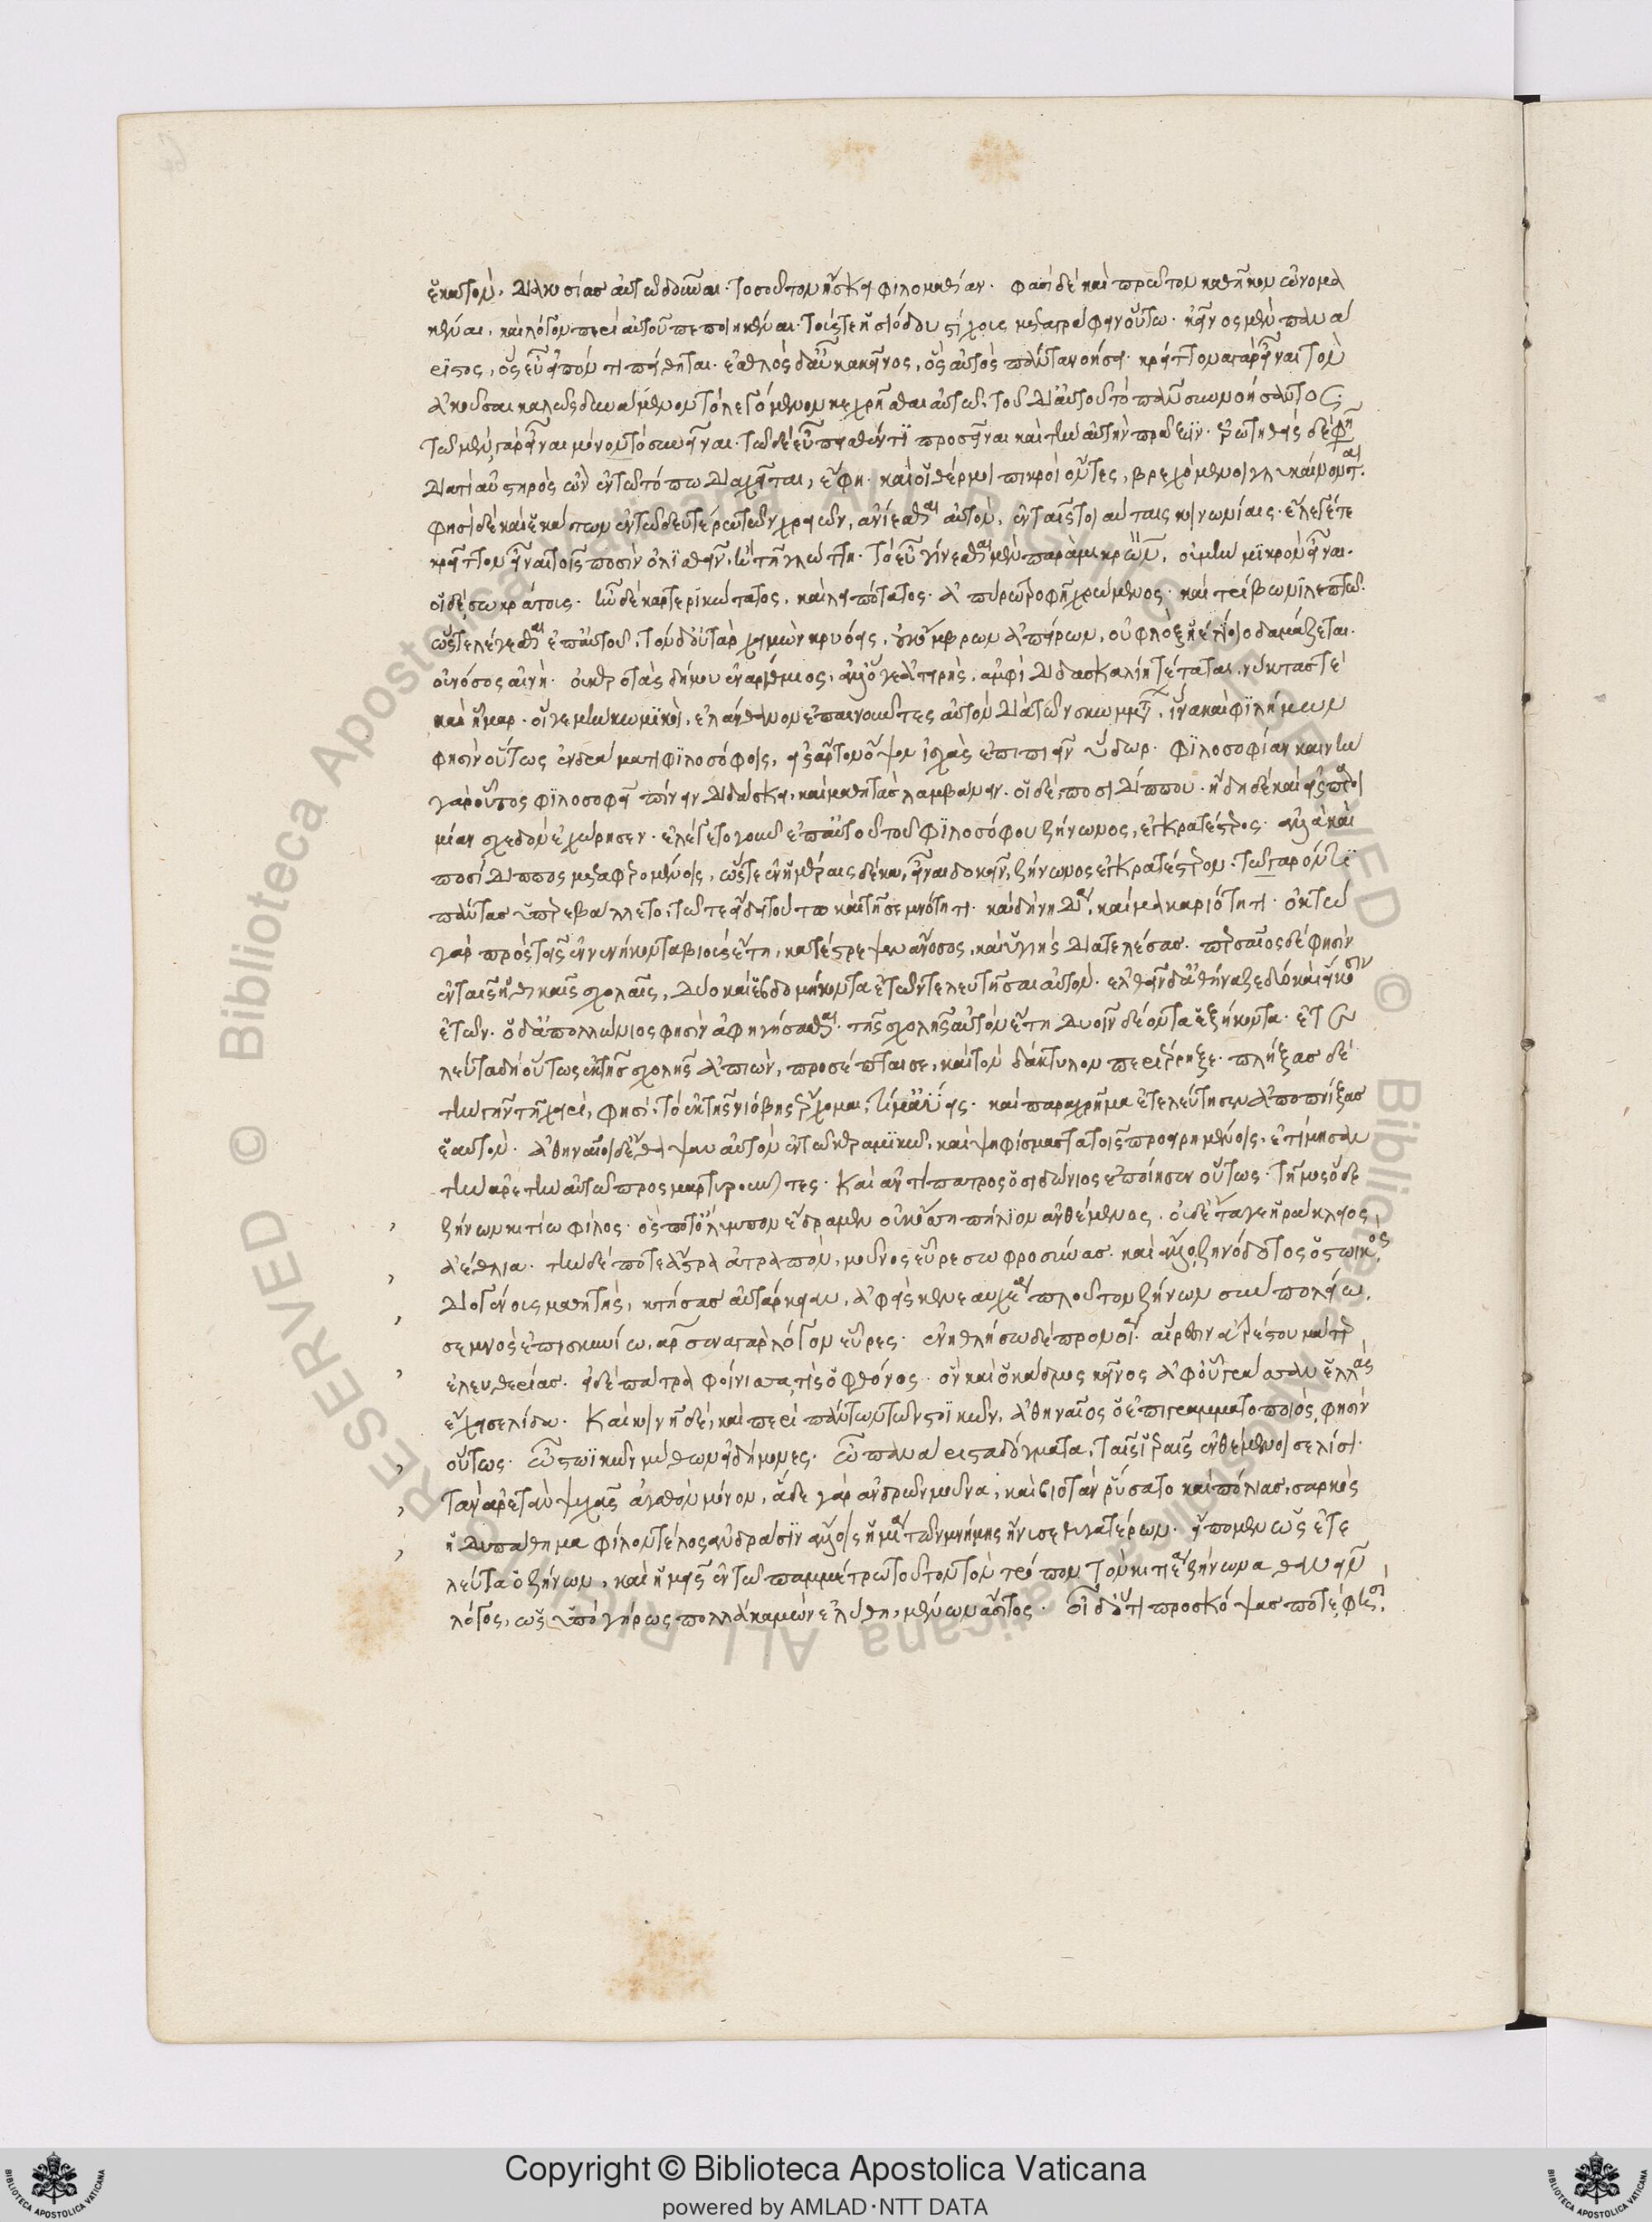 ἑκατὸν, διακοσίας αὐτῷ δοῦναι. τοσοῦτον ἤσκει φιλομαθίαν. φασὶ δὲ καὶ πρῶτον καθῆκον ὠνομα
κέναι. καὶ λόγον περὶ αὐτοῦ πεποιηκέναι. τοῖς τε ἡσιόδου στίχοις μεταγράφειν οὕτω. κεῖνος μὲν πανά
ριστος, ὃς εὖ εἰπόντι πείθηται. ἐσθλὸς δ' αὖ κακεῖνος, ὃς αὐτὸς πάντα νοήσει. κρείττονα γὰρ εἶναι τὸν
ἀκοῦσαι καλῶς δυνάμενον τὸ λεγόμενον κεχρῆσθαι αὐτῷ. τοῦ δι' αὐτοῦ τὸ πᾶν συννοήσαντος.
τῷ μὲν γὰρ εἶναι μόνον τὸ συνεῖναι. τῷ δὲ εὖ πεισθέντι προσεῖναι καὶ τὴν αὐτὴν πρᾶξιν. ἐρωτηθεὶς δέ φη
διατί αὐστηρὸς ὢν ἐν τῷ τόπῳ διαχεῖται, ἔφη. καὶ οἱ θέρμοι πικροὶ ὄντες, βρεχόμενοι γλυκαίνονται.
φησὶ δὲ καὶ ἑκάστων ἐν τῷ δευτέρῳ τῶν χρειῶν, ἀνίεσθαι αὐτὸν, ἐν ταῖς τοιαύταις κοινωνίαις. ἔλεγέ τε
κρεῖττον εἶναι τοῖς ποσὶν ὀλισθεῖν, ἢ τῇ γλώττῃ. τὸ εὖ γίνεσθαι μὲν παρὰ μικρὸν, οὐ μὴν μικρὸν εἶναι.
οἱ δὲ σωκράτοις. ἦν δὲ καρτερικώτατος, καὶ λιτότατος. ἀπύρῳ τροφῇ χρώμενος. καὶ τρίβωνι λεπτῷ.
ὥστε λέγεσθαι ἐπ' αὐτοῦ. τοῦ δ' οὔταρ χειμὼν κρυόεις, οὐκ ὄμβρων ἀπείρων, οὐ φλὸξ ἠελίοιο δαμάζεται.
οὐ νόσος αἰνή. οὐκ ἐροτὰς δήμου ἐναρίθμιος, ἀλλ' ὅγε ἀτειρὴς, ἀμφὶ διδασκαλίῃ τέταται, νύκτας τὲ
καὶ ἦμαρ. οἵ γε μὴν κωμικοὶ, ἐλάνθανον ἐπαινοῦντες αὐτὸν διὰ τῶν σκωμμάτων. ἵνα καὶ φιλήμων
φησὶν οὕτως ἐν δράματι φιλοσόφοις, εἷς ἄρτον ὄψον ἰσχὰς ἐπιπιεῖν ὕδωρ. φιλοσοφίαν καινὴν
γὰρ οὗτος φιλοσοφεῖ πίνειν διδάσκει, καὶ μαθητὰς λαμβάνειν. οἱ δὲ, ποσιδίππου. ἤδη δὲ καὶ εἰς παροι
μίαν σχεδὸν ἐχώρησεν. ἐλέγετο γοῦν ἐπ' αὐτοῦ τοῦ φιλοσόφου ζήνωνος, ἐγκρατέστερος. ἀλλὰ καὶ
ποσίδιππος μεταφερομένοις, ὥστε ἐν ἡμέραις δέκα, εἶναι δοκεῖν, ζήνωνος ἐγκρατέστερον. τῷ γὰρ ὄντι
πάντας ὑπερεβάλλετο. τῷ τε εἴδει τούτῳ καὶ τῇ σεμνότητι. καὶ δὴ νὴ δία, καὶ μακαριότητι. ὀκτὼ
γὰρ πρὸς τοῖς ἐννενήκοντα βιοὺς ἔτη, κατέστρεψεν ἄνοσος, καὶ ὑγιὴς διατελέσας. περσαῖος δέ φησὶν
ἐν ταῖς ἠθικαῖς σχολαῖς, δύο καὶ ἑβδομήκοντα ἐτῶν τελευτῆσαι αὐτόν. ἐλθεῖν δ' ἀθήναζε δύο καὶ εἴκοσιν
ἐτῶν. ὁ δ' ἀπολλώνιος φησὶν ἀφηγήσασθαι. τῆς σχολῆς αὐτὸν ἔτη δυοῖν δέοντα ἑξήκοντα. ἐτε
λεύτα δὴ οὕτως ἐκ τῆς σχολῆς ἀπιὼν, προσέπταισε, καὶ τὸν δάκτυλον περιέρρηξε. πλήξας δὲ
τὴν γῆν τῇ χειρὶ, φησὶ, τὸ ἐκ τῆς νιόβης ἔρχομαι. τί μ' ἀύεις. καὶ παραχρῆμα ἐτελεύτησεν ἀποπνίξας
ἑαυτόν. ἀθηναῖοι δὲ ἔθαψαν αὐτὸν ἐν τῷ κεραμικῷ. καὶ ψηφίσμασι τατοῖς προειρημένοις, ἐτίμησαν
τὴν ἀρετὴν αὐτῷ προσμαρτυροῦντες. Καὶ ἀντίπατρος ὁ σιδώνιος ἐποίησεν οὕτως. τῆμος ὅδε
ζήνων κιτίω φίλος. ὅς ποτ' ὄλυμπον ἔδραμεν οὐκ ὄσση πήλιον ἀνθέμενος. οὐδὲ τάγε ἡράκληος
ἀέθλια. τὴν δέ ποτε ἄστρα ἀτραπὸν, μοῦνος εὗρε σωφροσύνας. καὶ ἄλλο, ζηνόδοτος ὁ στωικὸς,
διογένοις μαθητής, κτήσας αὐτάρκειαν, ἀφεὶς κενεαυχέα πλοῦτον ζήνων σὺν πολιῷ,
σεμνὸς ἐπισκυνίῳ, ἄρσενα γὰρ λόγον εὗρες. ἐνηθλήσω δὲ προνοίᾳ. αἵρεσιν ἀτρέστου ματέρ
ἐλευθερίας. εἰ δὲ πάτρα φοίνισσα, τίς ὁ φθόνος. ὃν καὶ ὁ κάδμος κεῖνος ἀφ' οὗ γραπτὰν ἑλλὰς
ἔχει σελίδα. Καὶ κοινῇ δὲ, καὶ περὶ πάντων τῶν στοϊκῶν, ἀθηναῖος ὁ ἐπιγραμματοποιός, φησὶν
οὕτως. ὦ στωϊκῶν μύθων εἰδήμονες. ὦ πανάριστα δόγματα, ταῖς ἱεραῖς ἐνθέμενοι σελίσι.
τὰν ἀρετὰν ψυχᾶς ἀγαθὸν μόνον, ἅδε γὰρ ἀνδρῶν μοῦνα, καὶ βιοτὰν ῥύσατο καὶ πόλιας, σαρκὸς
ἡδυπάθημα φίλον τέλος ἀνδράσιν ἄλλοις ἡ μία τῶν μνήμης ἤνυσε θυγατέρων. εἴπομεν ὡς ἐτε
λεύτα ὁ ζήνων, καὶ ἡμεῖς ἐν τῷ παμμέτρῳ τοῦτον τὸν τρόπον τὸν κιτιέα ζήνωνα θανεῖν
λόγος, ὡς ὑπὸ γήρως πολλὰ καμὼν ἐλύθη, μένων ἄσιτος. οἱ δ' ὅτι προσκόψας ποτὲ, ἔφη